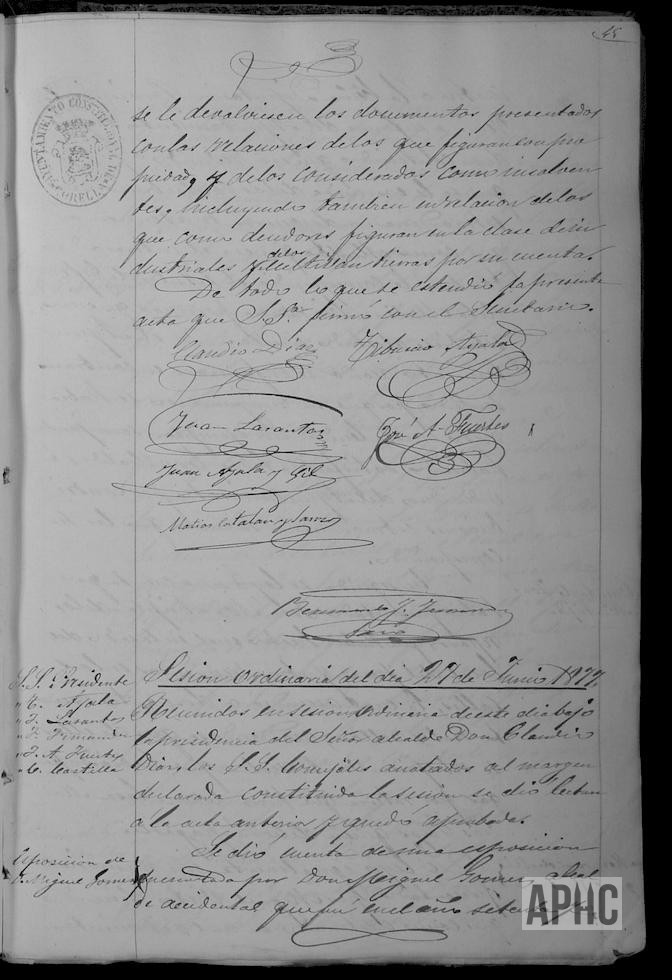 45
AYUNTAMIENTO CONSTITUCIONAL DE CORELLA
se le devolviesen los documentos presentados
con las relaciones de los que figuran con pro
piedad, y de los considerados como insolven
tes, incluyendo tambien en relacion de los
que como deudores figuran en la clase de in
dustriales y de los que cultivan tierras por su cuenta.
De todo lo que se estendió la presente
acta que S.Sª firmó con el Secretario.
Claudio Diaz
Tiburcio Ayala
Juan Lasantas
José A. Fuertes
Juan Ayala y Gil
Matias Catalan y
Srio
Sesion Ordinaria del dia 27 de Junio 1872
S. S. Presidente
" T. Ayala
" J. Lasantas
" F. Fernandez
" J. A. Fuertes
" C. Castilla
Reunidos en sesion ordinaria de este dia bajo
la presidencia del Señor alcalde Don Claudio
Diaz, los S. S. Concejales anotados al margen
declarada constituida la sesion se dió lectura
a la acta anterior y quedó aprobada.
Esposicion de
D. Miguel Gomez
Se dió cuenta de una esposicion
presentada por Don Miguel Gomez, Alcal
de accidental que fué en el año setenta
APHC